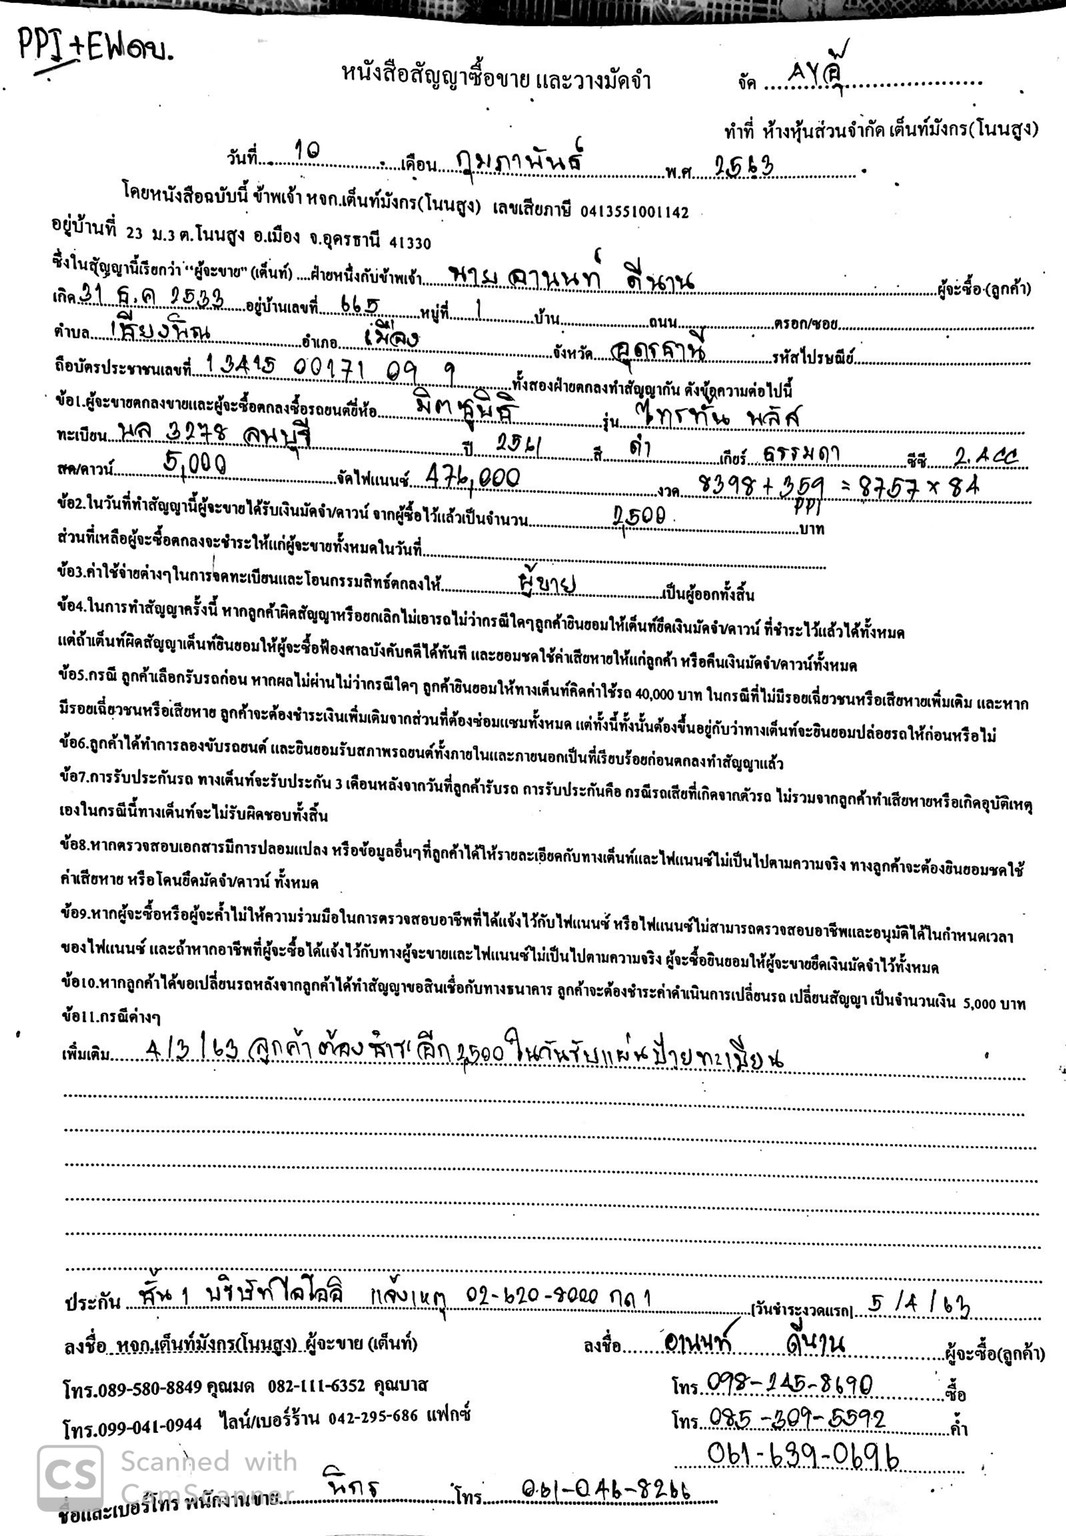 PPI+EWดบ.
หนังสือสัญญาซื้อขาย และวางมัดจำ
จัด AYอุ้
ทำที่ ห้างหุ้นส่วนจำกัด เต็นท์มังกร(โนนสูง)
วันที่ 10 เดือน กุมภาพันธ์ พ.ศ 2563
โดยหนังสือฉบับนี้ ข้าพเจ้า หจก.เต็นท์มังกร(โนนสูง) เลขเสียภาษี 0413551001142
อยู่บ้านที่ 23 ม.3 ต.โนนสูง อ.เมือง จ.อุดรธานี 41330
ซึ่งในสัญญานี้เรียกว่า "ผู้จะขาย" (เต็นท์) ....ฝ่ายหนึ่งกับข้าพเจ้า นาย อานนท์ ดีนาน ผู้จะซื้อ (ลูกค้า)
เกิด 31 ธ.ค 2533 อยู่บ้านเลขที่ 665 หมู่ที่ 1 บ้าน ถนน ตรอก/ซอย
ตำบล เชียงพิณ อำเภอ เมือง จังหวัด อุดรธานี รหัสไปรษณีย์
ถือบัตรประชาชนเลขที่ 1 3415 00171 09 9 ทั้งสองฝ่ายตกลงทำสัญญากัน ดังข้อความต่อไปนี้
ข้อ1.ผู้จะขายตกลงขายและผู้จะซื้อตกลงซื้อรถยนต์ยี่ห้อ มิตซูบิชิ รุ่น ไทรทัน พลัส
ทะเบียน ผล 3278 ลพบุรี ปี 2561 สี ดำ เกียร์ ธรรมดา ซีซี 2.4CC
สด/ดาวน์ 5,000 จัดไฟแนนซ์ 476,000 งวด 8398 + 359 = 8757 x 84
PPI
ข้อ2.ในวันที่ทำสัญญานี้ผู้จะขายได้รับเงินมัดจำ/ดาวน์ จากผู้ซื้อไว้แล้วเป็นจำนวน 2,500 บาท
ส่วนที่เหลือผู้จะซื้อตกลงจะชำระให้แก่ผู้จะขายทั้งหมดในวันที่
ข้อ3.ค่าใช้จ่ายต่างๆในการจดทะเบียนและโอนกรรมสิทธ์ตกลงให้ ผู้ขาย เป็นผู้ออกทั้งสิ้น
ข้อ4.ในการทำสัญญาครั้งนี้ หากลูกค้าผิดสัญญาหรือยกเลิกไม่เอารถไม่ว่ากรณีใดๆลูกค้ายินยอมให้เต็นท์ยึดเงินมัดจำ/ดาวน์ ที่ชำระไว้แล้วได้ทั้งหมด
แต่ถ้าเต็นท์ผิดสัญญาเต็นท์ยินยอมให้ผู้จะซื้อฟ้องศาลบังคับคดีได้ทันที และยอมชดใช้ค่าเสียหายให้แก่ลูกค้า หรือคืนเงินมัดจำ/ดาวน์ทั้งหมด
ข้อ5.กรณี ลูกค้าเลือกรับรถก่อน หากผลไม่ผ่านไม่ว่ากรณีใดๆ ลูกค้ายินยอมให้ทางเต็นท์คิดค่าใช้รถ 40,000 บาท ในกรณีที่ไม่มีรอยเฉี่ยวชนหรือเสียหายเพิ่มเติม และหาก
มีรอยเฉี่ยวชนหรือเสียหาย ลูกค้าจะต้องชำระเงินเพิ่มเติมจากส่วนที่ต้องซ่อมแซมทั้งหมด แต่ทั้งนี้ทั้งนั้นต้องขึ้นอยู่กับว่าทางเต็นท์จะยินยอมปล่อยรถให้ก่อนหรือไม่
ข้อ6.ลูกค้าได้ทำการลองขับรถยนต์ และยินยอมรับสภาพรถยนต์ทั้งภายในและภายนอกเป็นที่เรียบร้อยก่อนตกลงทำสัญญาแล้ว
ข้อ7.การรับประกันรถ ทางเต็นท์จะรับประกัน 3 เดือนหลังจากวันที่ลูกค้ารับรถ การรับประกันคือ กรณีรถเสียที่เกิดจากตัวรถ ไม่รวมจากลูกค้าทำเสียหายหรือเกิดอุบัติเหตุ
เองในกรณีนี้ทางเต็นท์จะไม่รับผิดชอบทั้งสิ้น
ข้อ8.หากตรวจสอบเอกสารมีการปลอมแปลง หรือข้อมูลอื่นๆที่ลูกค้าได้ให้รายละเอียดกับทางเต็นท์และไฟแนนซ์ไม่เป็นไปตามความจริง ทางลูกค้าจะต้องยินยอมชดใช้
ค่าเสียหาย หรือโดนยึดมัดจำ/ดาวน์ ทั้งหมด
ข้อ9.หากผู้จะซื้อหรือผู้จะค้ำไม่ให้ความร่วมมือในการตรวจสอบอาชีพที่ได้แจ้งไว้กับไฟแนนซ์ หรือไฟแนนซ์ไม่สามารถตรวจสอบอาชีพและอนุมัติได้ในกำหนดเวลา
ของไฟแนนซ์ และถ้าหากอาชีพที่ผู้จะซื้อได้แจ้งไว้กับทางผู้จะขายและไฟแนนซ์ไม่เป็นไปตามความจริง ผู้จะซื้อยินยอมให้ผู้จะขายยึดเงินมัดจำไว้ทั้งหมด
ข้อ10.หากลูกค้าได้ขอเปลี่ยนรถหลังจากลูกค้าได้ทำสัญญาขอสินเชื่อกับทางธนาคาร ลูกค้าจะต้องชำระค่าดำเนินการเปลี่ยนรถ เปลี่ยนสัญญา เป็นจำนวนเงิน 5,000 บาท
ข้อ11.กรณีต่างๆ
เพิ่มเติม 4/3/63 ลูกค้าต้องชำระอีก 2,500 ในวันรับแผ่นป้ายทะเบียน
ประกัน ชั้น 1 บริษัทไอโออิ แจ้งเหตุ 02-620-8000 กด 1 (วันชำระงวดแรก) 5/4/63
ลงชื่อ หจก.เต็นท์มังกร(โนนสูง) ผู้จะขาย (เต็นท์) ลงชื่อ อานนท์ ดีนาน ผู้จะซื้อ(ลูกค้า)
โทร.089-580-8849 คุณมด 082-111-6352 คุณบาส โทร 098-245-8690 ซื้อ
โทร.099-041-0944 ไลน์/เบอร์ร้าน 042-295-686 แฟกซ์ โทร 085-309-5592 ค้ำ
061-639-0696
CS Scanned with CamScanner
ชื่อและเบอร์โทร พนักงานขาย นิกร โทร 061-046-8266